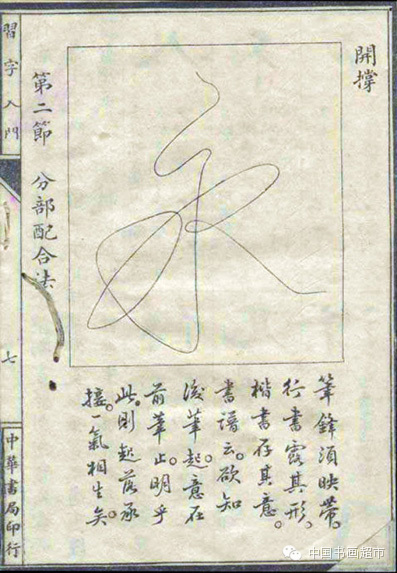 開撐
筆鋒須映帶。
行書露其形。
楷書存其意。
書譜云。欲知
後筆起。意在
前筆止。明乎
此。則起落承
接。一氣相生矣。
第二節 分部配合法
習字入門
七
中華書局印行
中国书画超市